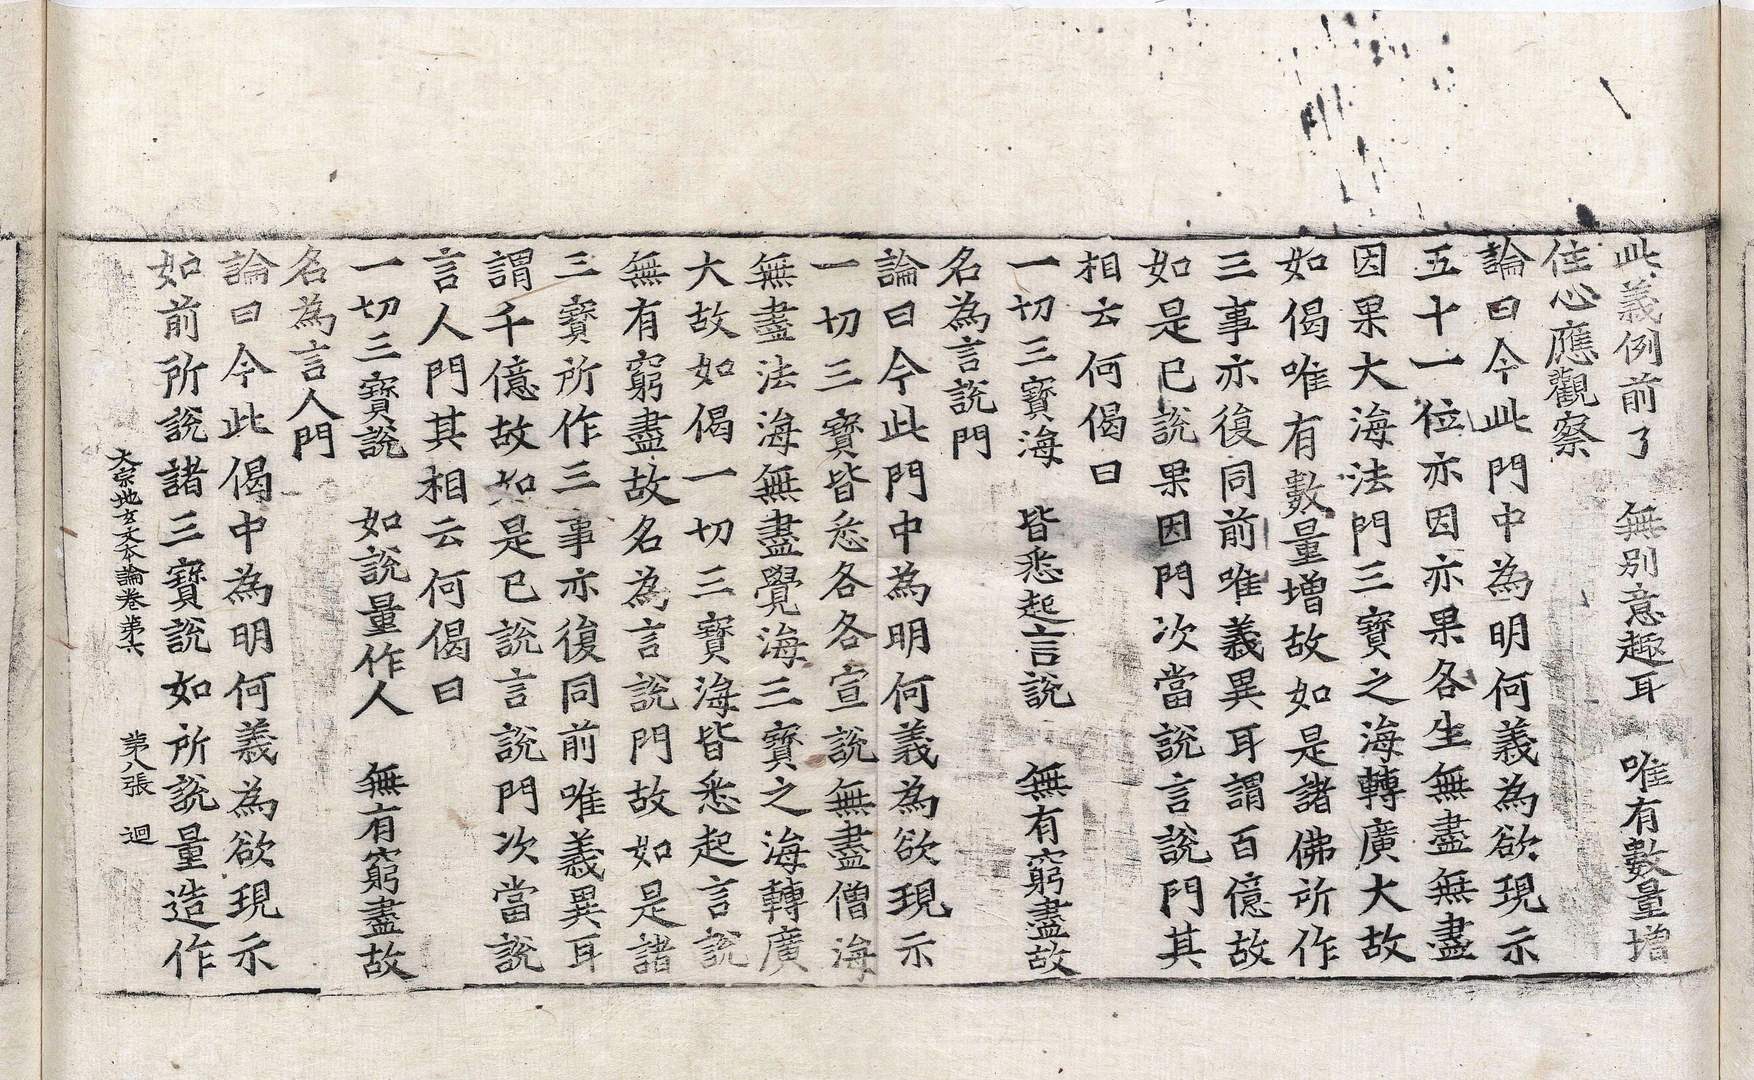 此義例前了　無別意趣耳　唯有數量增
住心應觀察
論曰今此門中為明何義為欲現示
五十一位亦因亦果各生無盡無盡
因果大海法門三寶之海轉廣大故
如偈唯有數量增故如是諸佛所作
三事亦復同前唯義異耳謂百億故
如是已說果因門次當說言說門其
相云何偈曰
一切三寶海　皆悉起言說　無有窮盡故
名為言說門
論曰今此門中為明何義為欲現示
一切三寶皆悉各各宣說無盡僧海
無盡法海無盡覺海三寶之海轉廣
大故如偈一切三寶海皆悉起言說
無有窮盡故名為言說門故如是諸
三寶所作三事亦復同前唯義異耳
謂千億故如是已說言說門次當說
言人門其相云何偈曰
一切三寶說　如說量作人　無有窮盡故
名為言人門
論曰今此偈中為明何義為欲現示
如前所說諸三寶說如所說量造作
大宗地玄文本論卷第六　第八張　迴